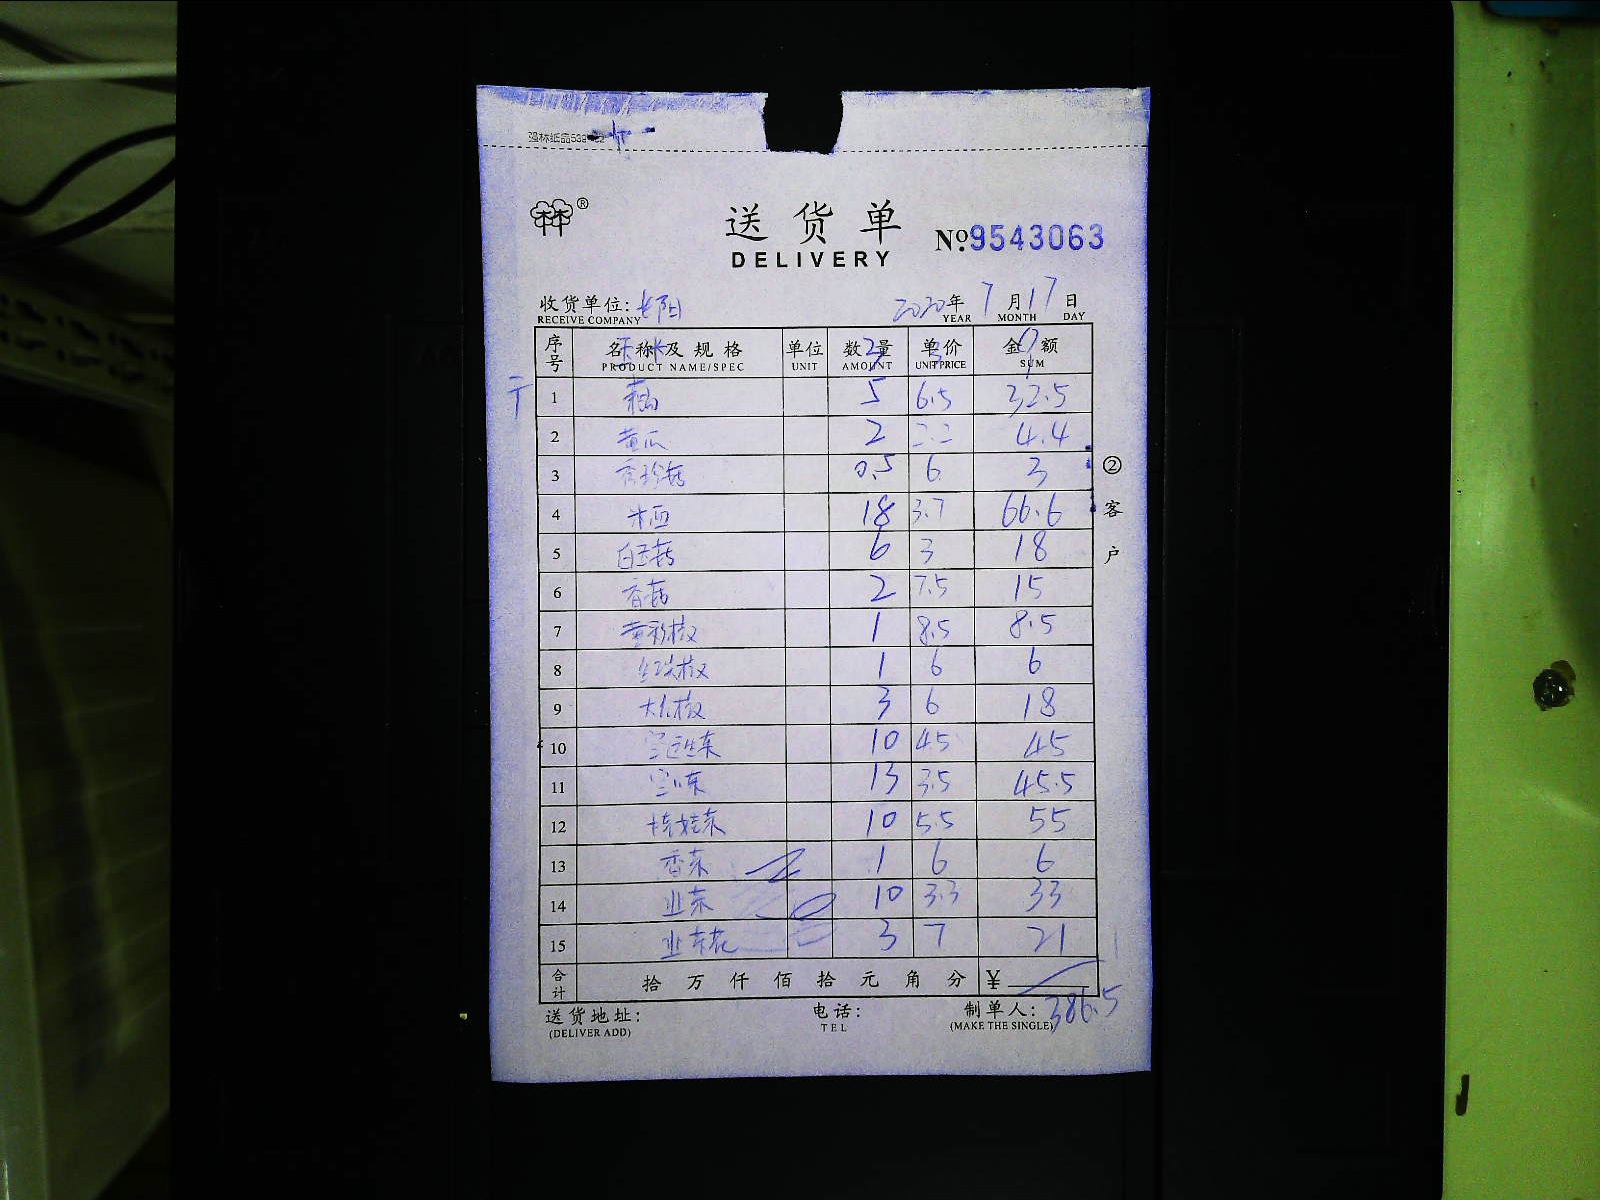 强林纸品
林®
送货单
DELIVERY
№9543063
收货单位: 长阳 2020年 7月17日
RECEIVE COMPANY YEAR MONTH DAY
序号 名称及规格 单位 数量 单价 金额
PRODUCT NAME/SPEC UNIT AMOUNT UNIT PRICE SUM
1 5 6.5 32.5
2 黄瓜 2 2.2 4.4
3 秀珍菇 0.5 6 3
4 18 3.7 66.6
5 白玉菇 6 3 18
6 香菇 2 7.5 15
7 黄彩椒 1 8.5 8.5
8 红尖椒 1 6 6
9 大红椒 3 6 18
10 10 45 45
11 13 3.5 45.5
12 娃菜 10 5.5 55
13 香菜 1 6 6
14 业菜 10 3.3 33
15 业菜花 3 7 21
合计 拾 万 仟 佰 拾 元 角 分 ¥
386.5
送货地址: 电话: 制单人:
(DELIVER ADD) TEL (MAKE THE SINGLE)
②客户